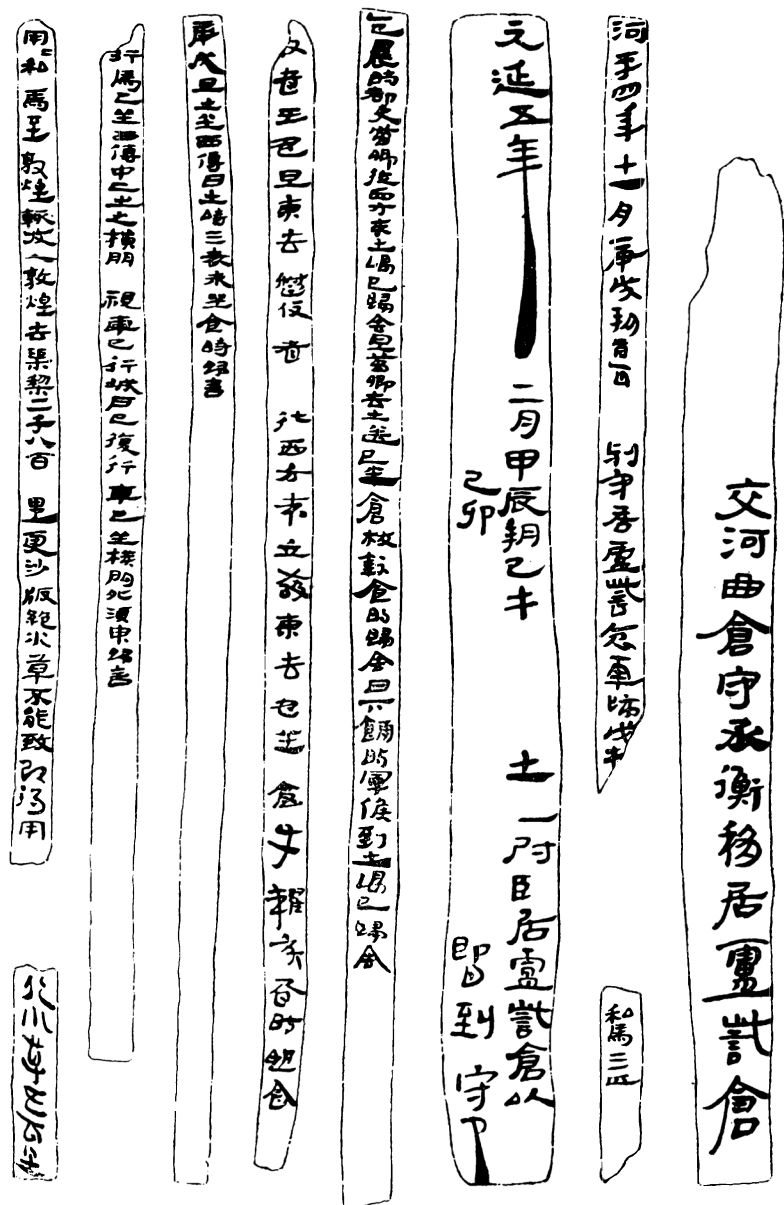 交河曲倉守丞衡移居盧訾倉
河平四年十一月庚戌朔辛酉　別守居盧訾倉車師戊校
私馬二匹
元延五年　二月甲辰朔己未　土　尉臣居盧訾倉以
己卯　即日到　守
乞晨時都吏葛卿從西方來出謁已歸舍旦葛卿去出送已坐倉校錢食時歸舍日下餔時軍候到出謁已歸舍
使者王君旦東去督使者　從西方來立發東去已坐倉吏耀黃昏時歸舍
庚戌旦出坐西傳日出時三老來坐食時歸舍
行馬已坐西傳中已出之橫門　視車已行城戶已復行車已坐橫門外須臾歸舍
用二私馬至敦煌輒收入敦煌去渠犁二千八百　里更沙版絕水草不能致即得用